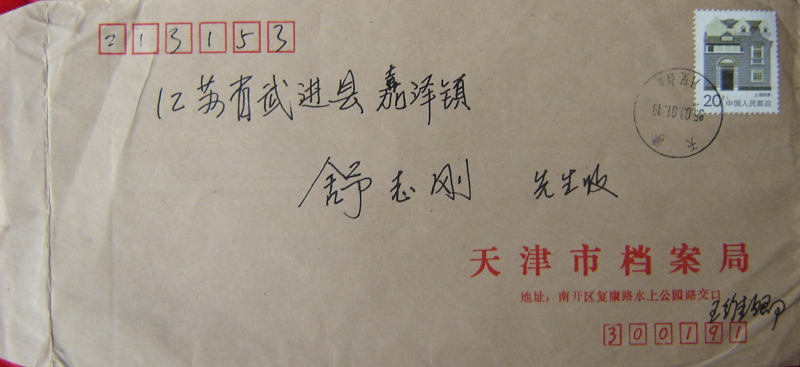 213153
江苏省武进县嘉泽镇
舒志刚 先生收
上海民居
20分 中国人民邮政
天津
95.03.01.19
天津市档案局
地址：南开区复康路水上公园路交口
王维卿
300191